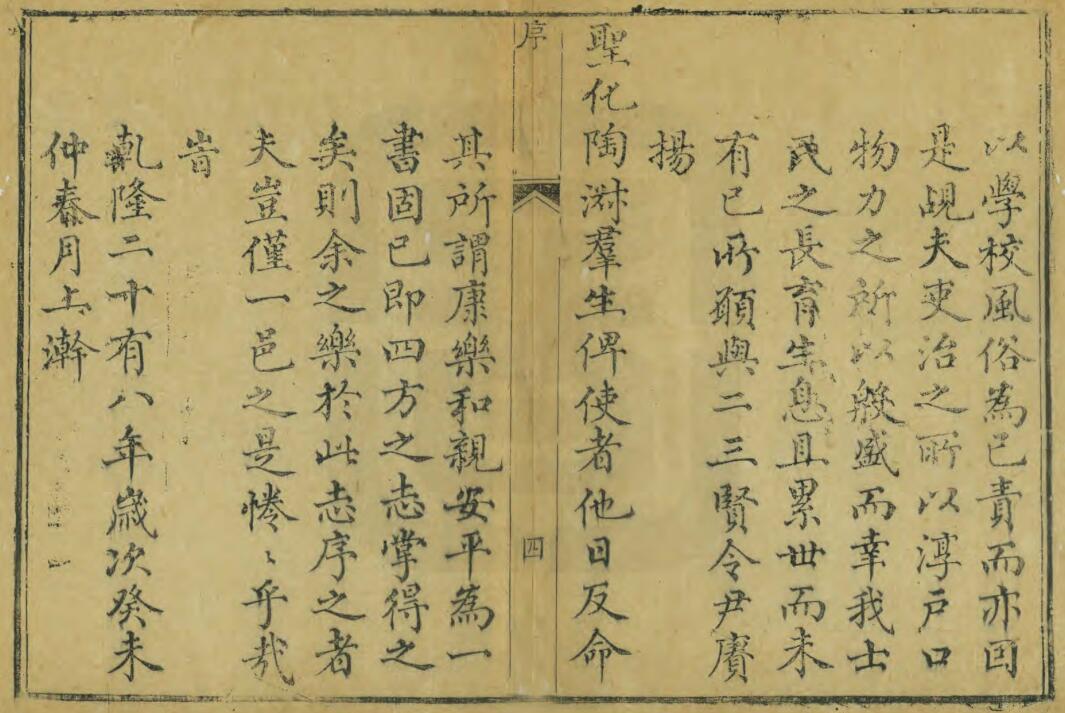 以學校風俗為已責而亦囙
是覘夫吏治之所以淳戸口
物力之所以殷盛而幸我士
民之長育生息且累世而未
有已所願與二三賢令尹賡
揚
聖化陶淑羣生俾使者他日反命
序
四
其所謂康樂和親安平為一
書固已即四方之志掌得之
矣則余之樂於此志序之者
夫豈僅一邑之是惓〻乎㢤
旹
乹隆二十有八年歲次癸未
仲春月上澣